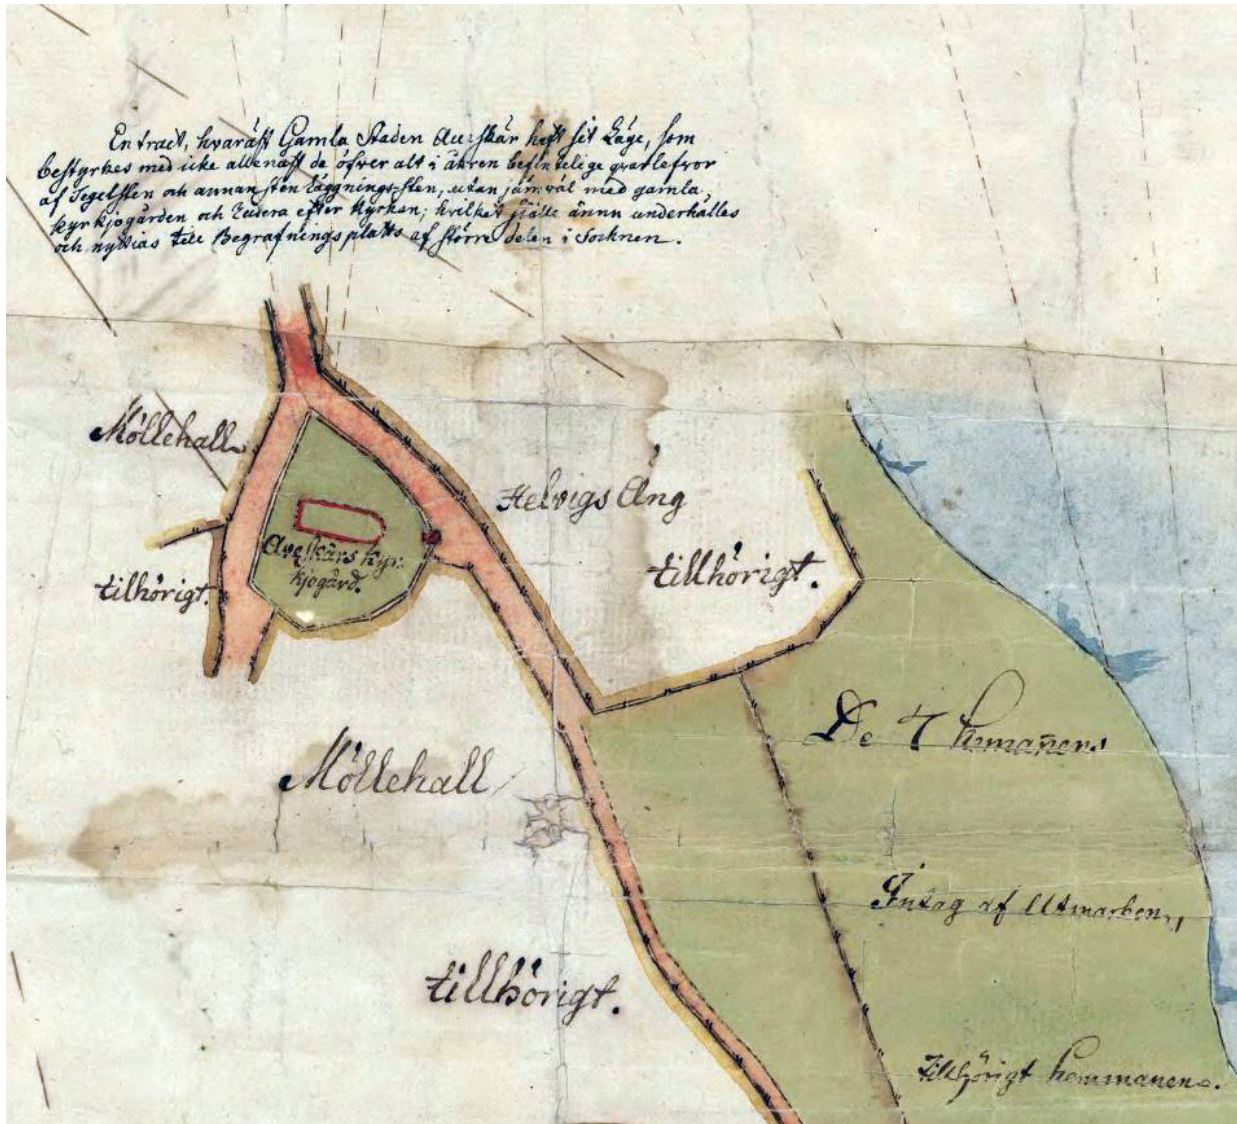 En tract, hvaräst Gamla Staden Aveskär haft sit Läge, som
bestyrkes med icke allenast de öfver alt i åkren befintelige qvarlefvor
af Tegelsten och annan sten läggnings-sten, utan jämväl med gamla
kyrkjogården och Rudera efter Kyrkan; hvilket ställe ännu underhålles
och nyttias till Begrafningsplatts af större delen i Socknen.
Möllehall
tilhörigt.
Aveskärs kyr-
kjogård.
Helvigs Äng
tillhörigt.
Möllehall
tillhörigt.
De 7 hemanen
Intag af Utmarken,
tillhörigt hemmanen.